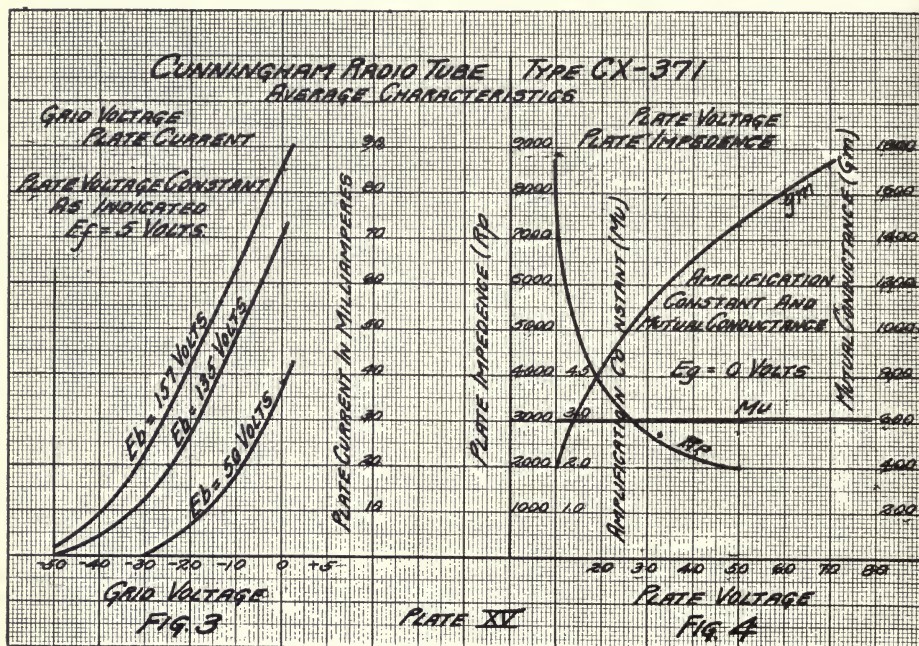 CUNNINGHAM RADIO TUBE TYPE CX-371
AVERAGE CHARACTERISTICS
GRID VOLTAGE
PLATE CURRENT
PLATE VOLTAGE CONSTANT
AS INDICATED
Ef = 5 VOLTS
Eb = 157 VOLTS
Eb = 135 VOLTS
Eb = 90 VOLTS
PLATE CURRENT IN MILLIAMPERES
90
80
70
60
50
40
30
20
10
-50 -40 -30 -20 -10 0 +5
GRID VOLTAGE
FIG. 3
PLATE XV
PLATE VOLTAGE
PLATE IMPEDENCE
PLATE IMPEDENCE (Rp
9000
8000
7000
6000
5000
4000
3000
2000
1000
AMPLIFICATION CONSTANT (Mu)
3.0
2.0
1.0
gm
AMPLIFICATION
CONSTANT AND
MUTUAL CONDUCTANCE
Eg = 0 VOLTS
Mu
Rp
MUTUAL CONDUCTANCE (Gm)
1800
1600
1400
1200
1000
800
600
400
200
20 30 40 50 60 70 80
PLATE VOLTAGE
FIG. 4